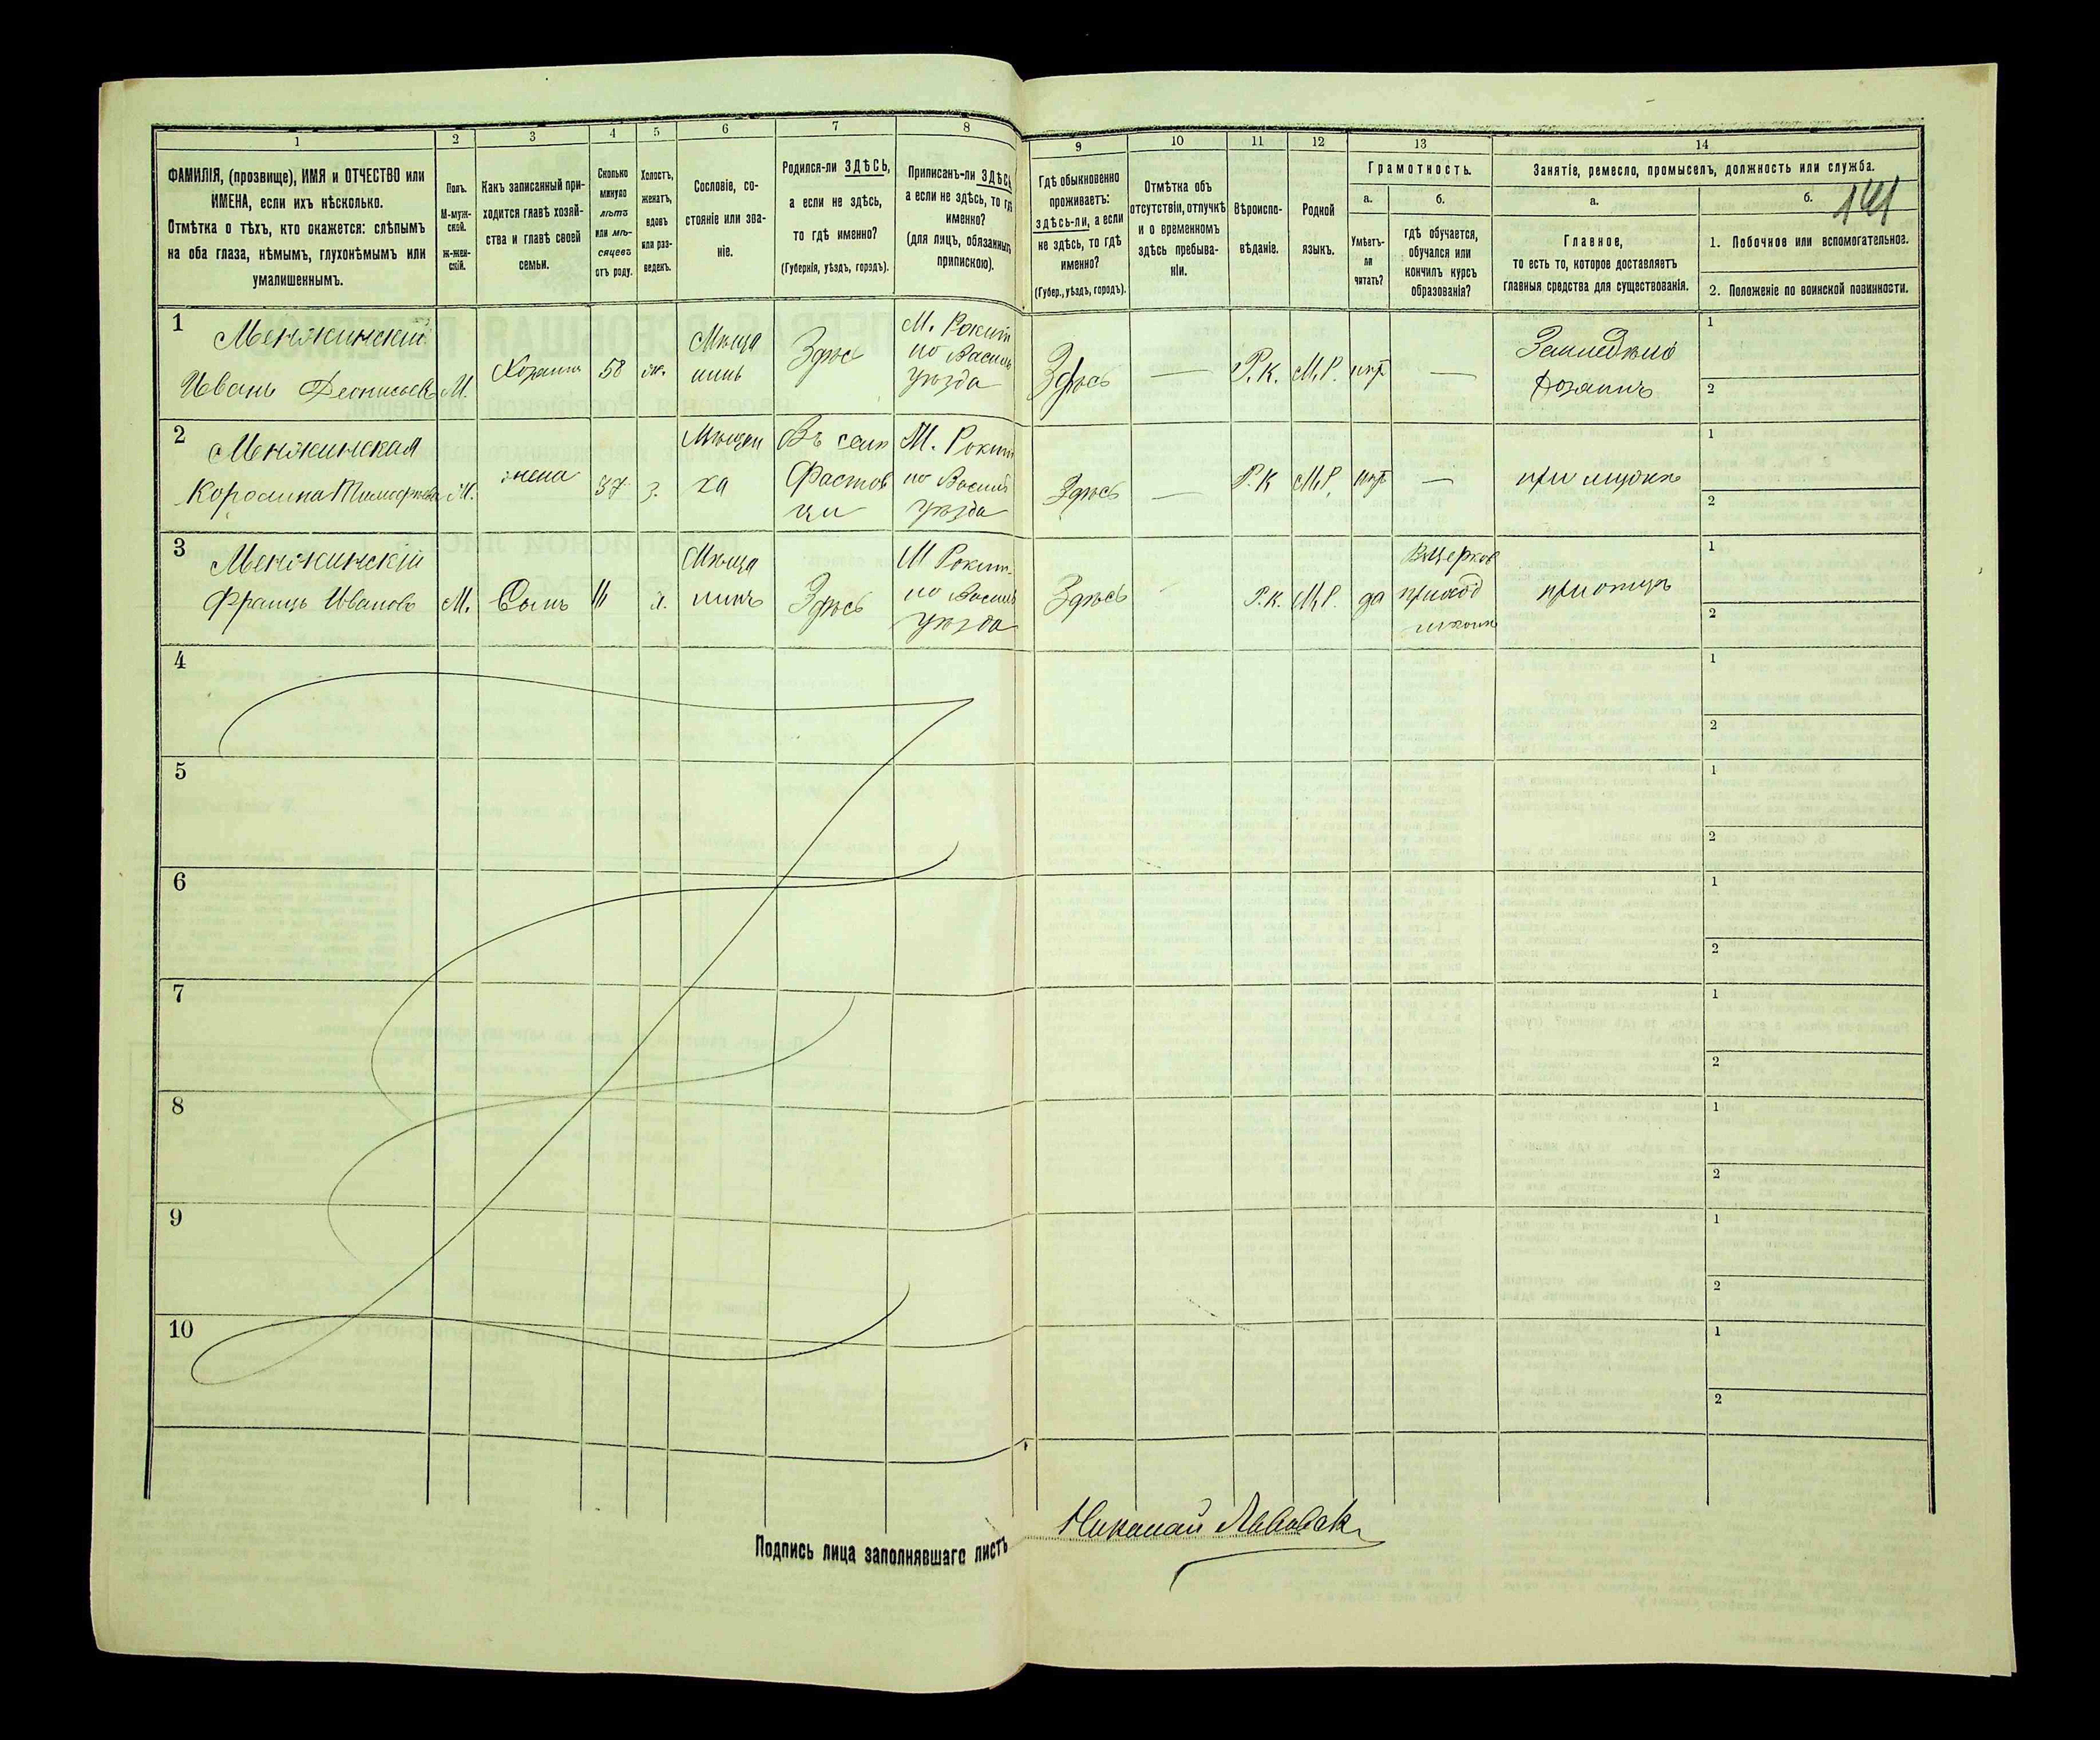 1
2
3
4
5
6
7
8
ФАМИЛІЯ, (прозвище), ИМЯ и ОТЧЕСТВО или
ИМЕНА, если ихъ нѣсколько.
Отмѣтка о тѣхъ, кто окажется: слѣпымъ
на оба глаза, нѣмымъ, глухонѣмымъ или
умалишеннымъ.
Полъ.
М-муж-
ской.
ж-жен-
скій.
Какъ записанный при-
ходится главѣ хозяй-
ства и главѣ своей
семьи.
Сколько
минуло
лѣтъ
или мѣ-
сяцевъ
отъ роду.
Холостъ,
женатъ,
вдовъ
или раз-
веденъ.
Сословіе, со-
стояніе или зва-
ніе.
Родился-ли ЗДѢСЬ,
а если не здѣсь,
то гдѣ именно?
(Губернія, уѣздъ, городъ).
Приписанъ-ли ЗДѢСЬ
а если не здѣсь, то гдѣ
именно?
(для лицъ, обязанныхъ
припискою).
9
10
11
12
13
14
Гдѣ обыкновенно
проживаетъ:
здѣсь-ли, а если
не здѣсь, то гдѣ
именно?
(Губер., уѣздъ, городъ).
Отмѣтка объ
отсутствіи, отпускѣ
и о временномъ
здѣсь пребыва-
ніи.
Вѣроиспо-
вѣданіе.
Родной
языкъ.
Грамотность.
а.
б.
Умѣетъ-
ли
читать?
гдѣ обучается,
обучался или
кончилъ курсъ
образованія?
Занятіе, ремесло, промыселъ, должность или служба.
а.
б.
141
Главное,
то есть то, которое доставляетъ
главныя средства для существованія.
1. Побочное или вспомогательное.
2. Положеніе по воинской повинности.
1
Менжинскій
Иванъ
М.
Хозяинъ
58
ж.
Мѣща
нинъ
Здѣс
М. Рокит
по Васил
уѣзда
Здѣсь
—
Р.К.
М.Р.
нѣт
—
Хозяинъ
1
2
2
Менжинская
М.
жена
37
з.
Мѣщан
ка
Въ
Фастов
ци
М. Рокит
но Васил
уѣзда
Здѣсь
—
Р.К
М.Р.
нѣт
—
при мужѣ
1
2
3
Менжинскій
Францъ Иванов
М.
Сынъ
11
х.
Мѣща
нинъ
Здѣсь
М Рокит
но Васил
уѣзда
Здѣсь
-
Р.К.
М.Р.
да
Вцерков
приход
школѣ
при отцѣ
1
2
4
1
2
5
1
2
6
1
2
7
1
2
8
1
2
9
1
2
10
1
2
Подпись лица заполнявшаго листъ
Николай